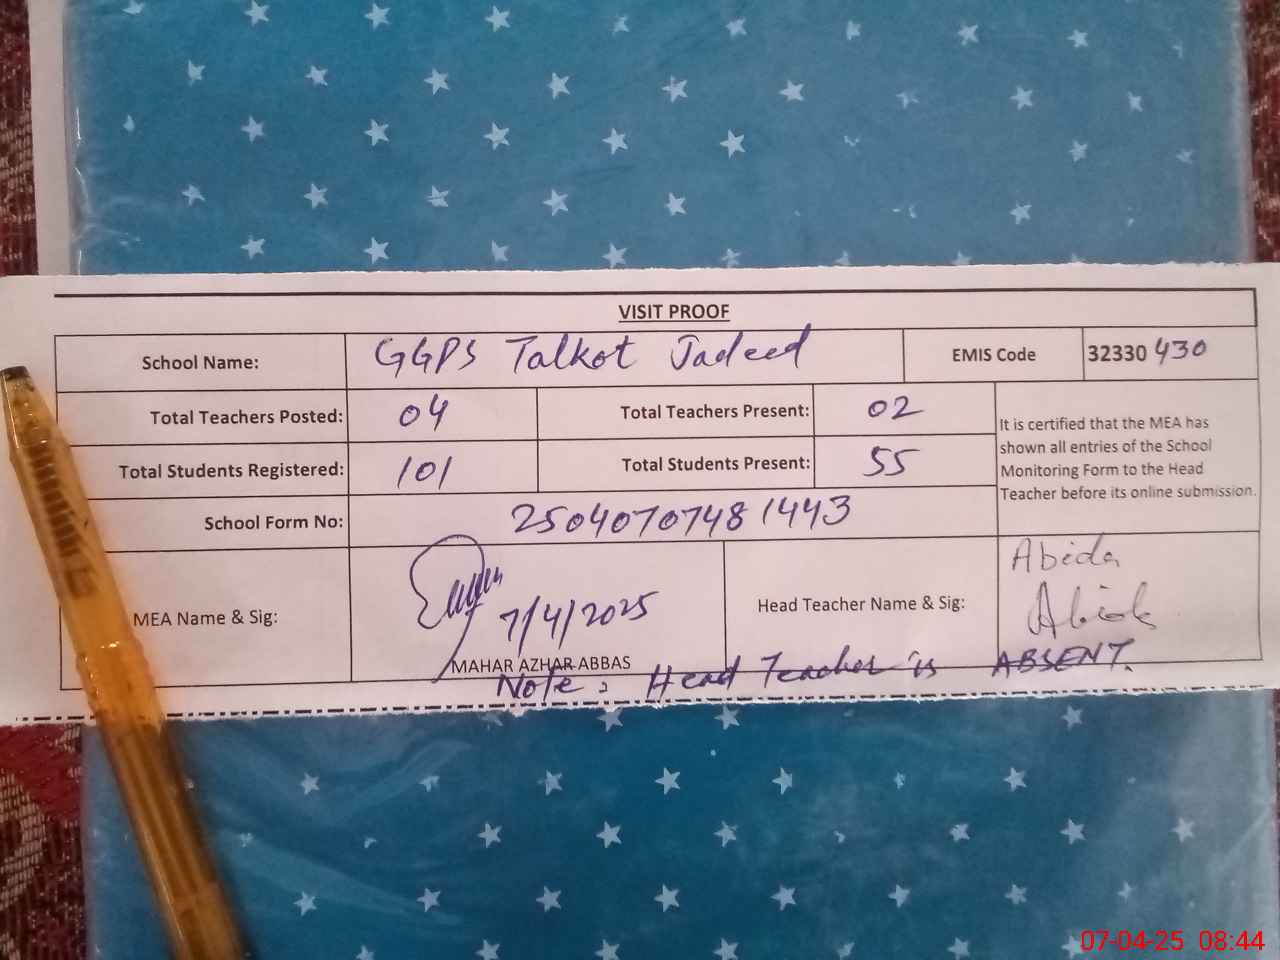 VISIT PROOF
School Name: GGPS Talkot Jadeed EMIS Code 32330 430
Total Teachers Posted: 04 Total Teachers Present: 02
Total Students Registered: 101 Total Students Present: 55
It is certified that the MEA has
shown all entries of the School
Monitoring Form to the Head
Teacher before its online submission.
School Form No: 2504070748 1443
MEA Name & Sig: 7/4/2025
MAHAR AZHAR ABBAS
Head Teacher Name & Sig: Abida
Abida
Note: Head Teacher is ABSENT.
07-04-25 08:44